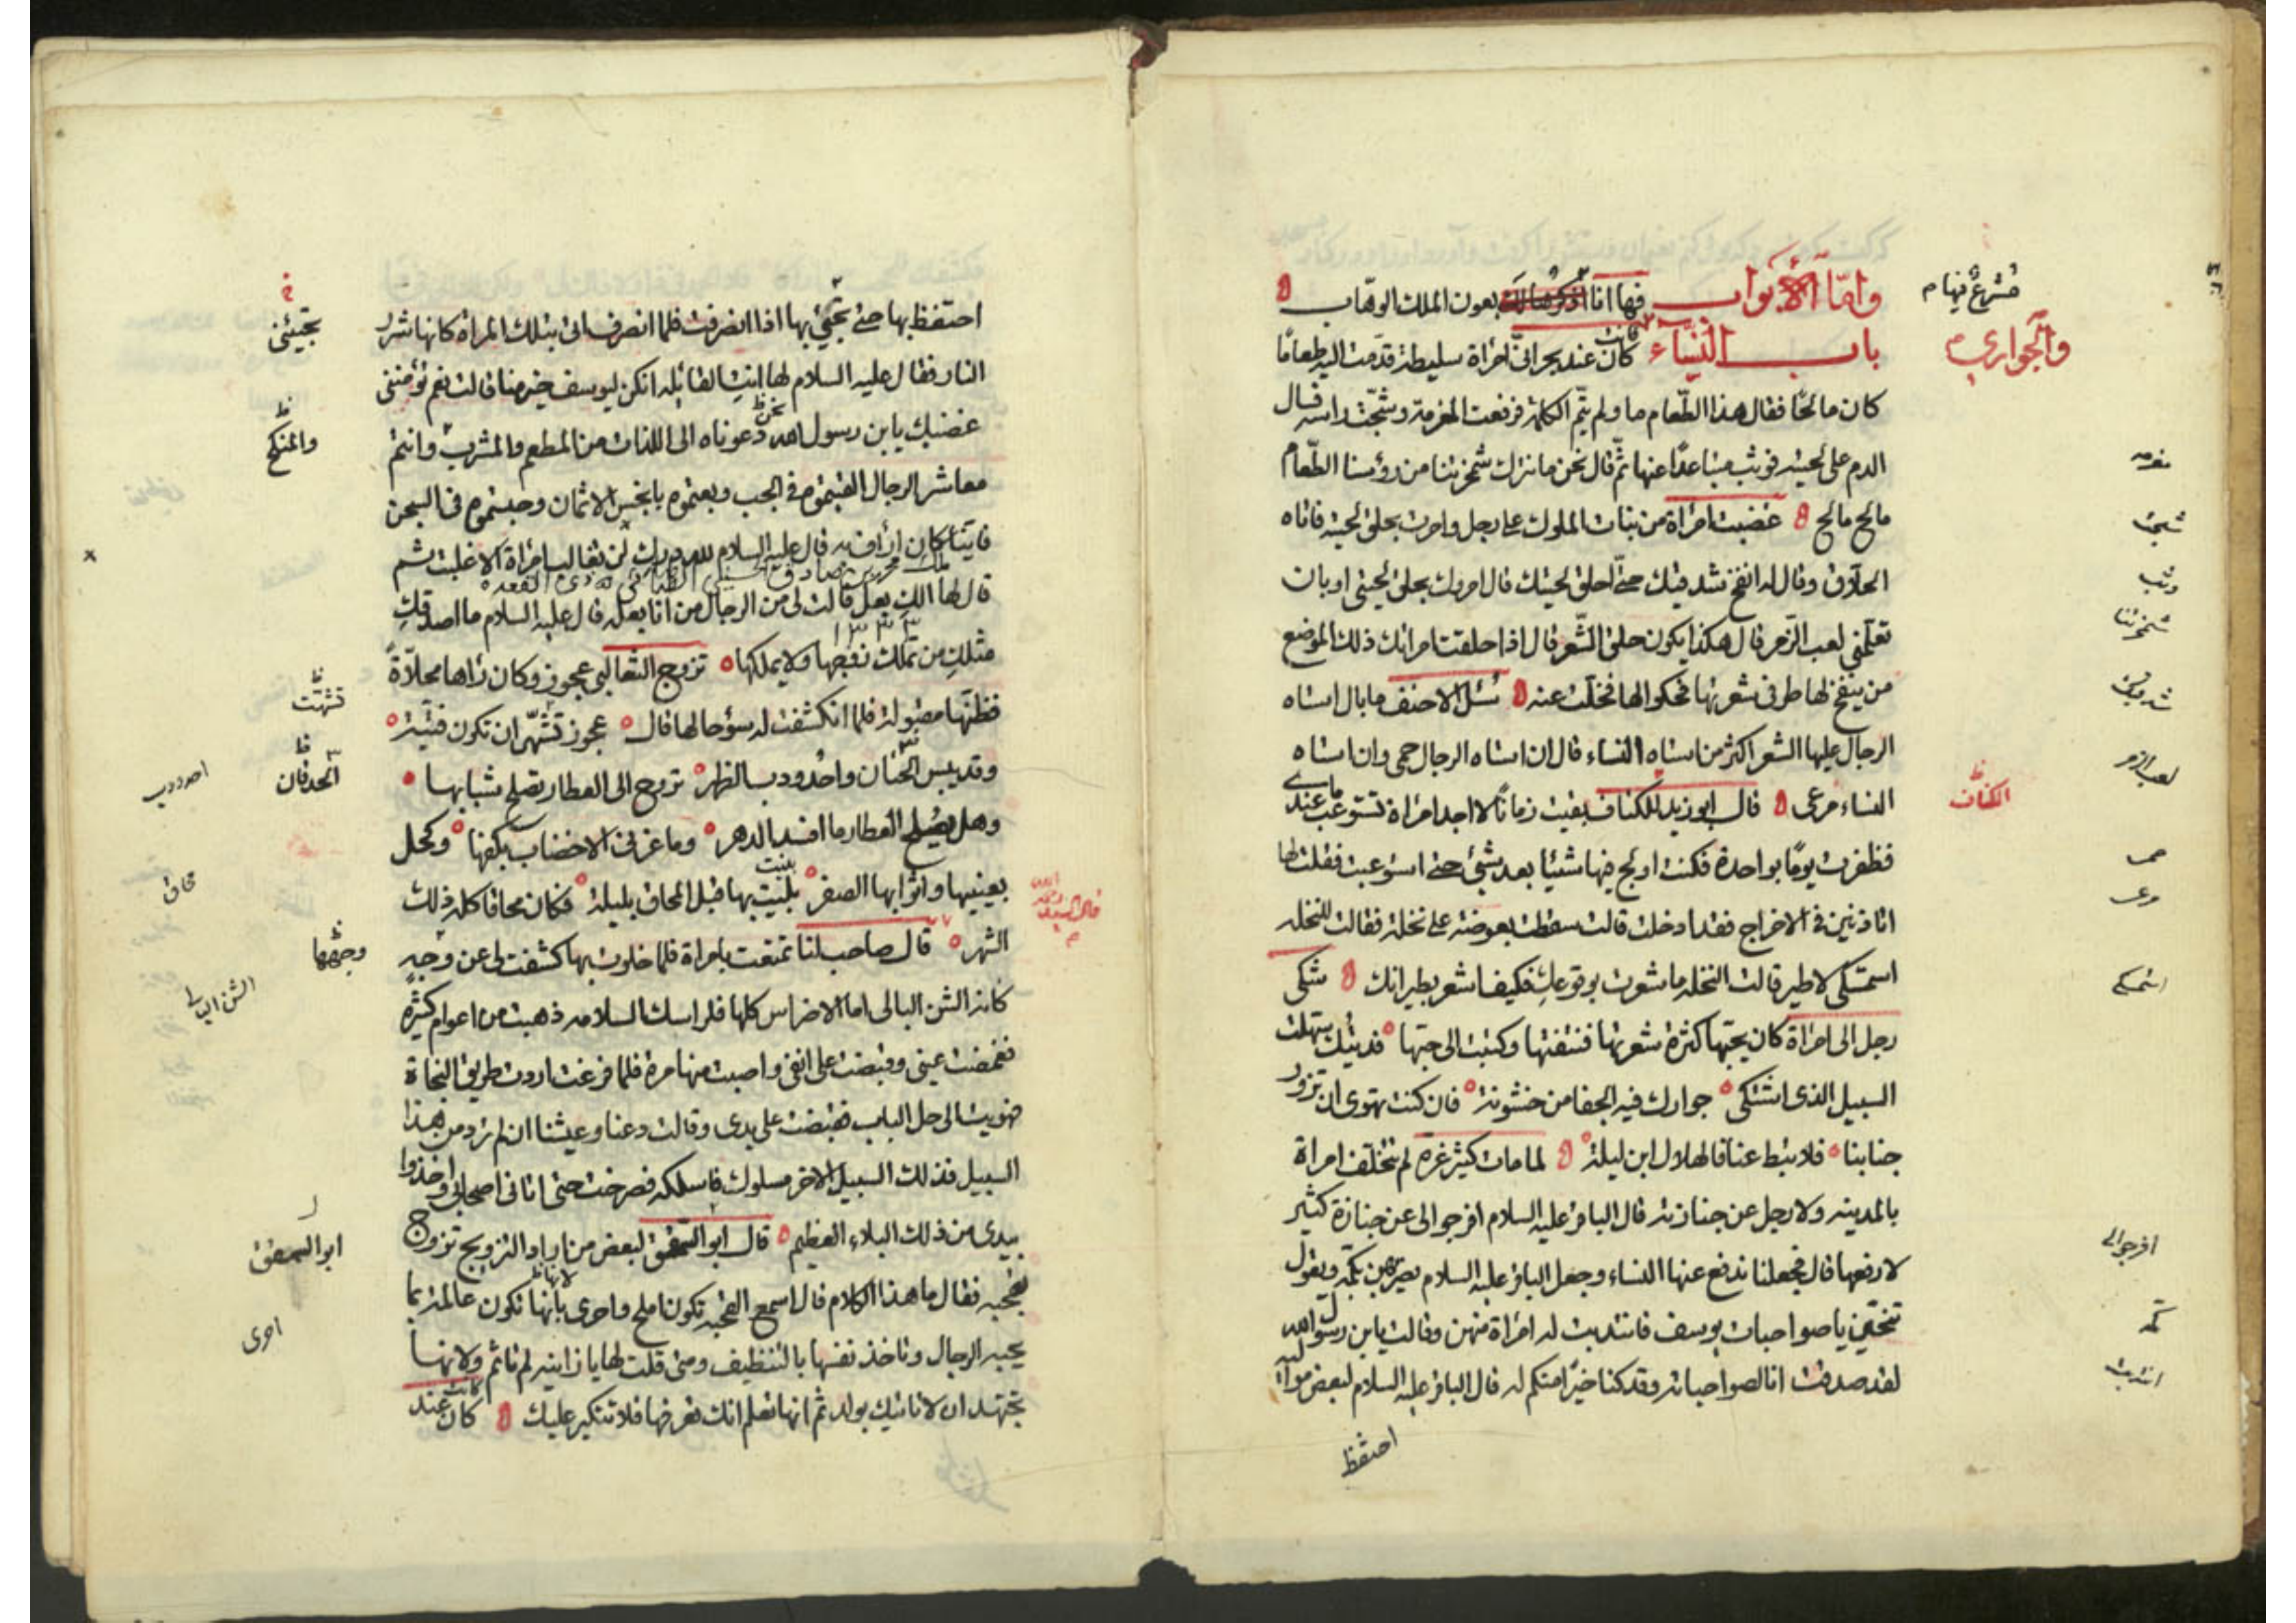 وامّا الأبواب فها انا اذكرها لك بعون الملك الوهّاب
فشرع فيها م
باب النساء كان عند بحراني امراة سليطة قدّمت اليه طعامًا
والجواري م
كان مالحًا فقال هذا الطّعام ما ولم يتمّ الكلمة فرفعت المغرفة وشجّت راسه فسال
الدم على لحيته فوثب متباعدًا عنها ثمّ قال نحن ما نترك شمخرتنا من رؤسنا الطّعام
مالح مالح غضبت امراة من بنات الملوك على رجل وامرت بحلق لحيته فاتاه
الحلاق وقال له انفخ شدقيك حتى احلق لحيتك قال امروك بحلق لحيتي او بان
تعلّمني لعب الزّمر قال هكذا يكون حلق الشّعر قال اذا حلقت امراتك ذلك الموضع
من ينفخ لها طرفي شعرتها فحكوا لها فخلّت عنه سئل الاحنف ما بال استاه
الرجال عليها الشعر اكثر من استاه النساء قال ان استاه الرجال حمى وان استاه
النساء مرعى قال ابو زيد للكناف بقيت زمانًا لا اجد امراة تستوعب ما عندي
الكناف
فظفرت يومًا بواحدة فكنت اولج فيها شيئا بعد شئ حتى استوعبت فقلت لها
اتاذنين في الاخراج فقد ادخلت قالت سقطت بعوضة على نخلة فقالت للنخلة
استمسكي لاطير قالت النخلة ما شعرت بوقوعك فكيف اشعر بطيرانك شكى
رجل الى امراة كان يحبّها كثرة شعرتها فنتفتها وكتبت الى حبّها فديتك سهلت
السبيل الذي اشتكى جوارك فيه الجفا من خشونة فان كنت تهوى ان تزور
جنابنا فلا تبط عنا فالهلال ابن ليلة لما مات كثير عزة لم تتخلّف امراة
بالمدينة ولا رجل عن جنازته قال الباقر عليه السلام افرجوا لي عن جنازة كثير
لارفعها قال فجعلنا ندفع عنها النساء وجعل الباقر عليه السلام يضربهن بكمّه ويقول
تنحّين يا صواحبات يوسف فانتدبت له امراة منهن وقالت يا بن رسول الله
لقد صدقت انا لصواحباته وقد كنا خيرًا منكم له قال الباقر عليه السلام لبعض مواليه
شجت
وثب
شمخرتنا
شدقيك
لعب الزمر
مرعى
استمسكي
افرجوا لي
كمّه
انتدبت
احتفظ
احتفظ بها حتى تجيئ بها اذا انصرفت فلما انصرف اتى بتلك المراة كانها شرر
تجيئني
النار فقال عليه السلام لها انتِ القائلة انكن ليوسف خير منا قالت نعم تؤمنني
غضبك يا بن رسول الله نحن دعوناه الى اللذات من المطعم والمشرب وانتم
والمنكح
معاشر الرجال القيتموه في الجب وبعتموه بابخس الاثمان وحبستموه في السجن
فايّنا كان ارأف به قال عليه السلام لله درك لن تغالب امراة الا غلبت ثم
قال لها الك بعل قالت لي من الرجال من انا بعله قال عليه السلام ما اصدقكِ
مثلكِ من تملك زوجها ولا يملكها تزوج الثعالبي عجوز وكان راها محلاّة
فظنّها مقبولة فلما انكشفت له سؤ حالها قال عجوز تشهّى ان تكون فتيّة
تشهّت
وقد يبس الجنان واحدودب الظهر تروح الى العطار تصلح شبابها
احدودب
وهل يصلح العطار ما افسد الدهر وما غرني الا خضاب بكفها وكحل
بعينيها واثوابها الصفر بنيت بها قبل المحاق بليلة فكان محاقا كله ذلك
محاق
الشهر قال صاحب لنا تمتعت بامراة فلما خلوت بها كشفت لي عن وجه
وجهها
كانه الشن البالي اما الاضراس كلها فلراسك السلامه ذهبت من اعوام كثيرة
الشن البالي
فغمضت عيني وقبضت على انفي واصبت منها مرة فلما فرغت اردت طريق النجاة
فهويت الى حل الباب فقبضت على يدي وقالت دعنا وعيشنا ان لم ترد من هذا
السبيل فذلك السبيل الاخر مسلوك فاسلكه فصرخت حتى اتاني اصحابي واخذوا
بيدي من ذلك البلاء العظيم قال ابو الشمقمق لبعض من اراد التزويج تزوج
بقحبه فقال ما هذا الكلام قال اسمع القحبه تكون املح واحرى بانها تكون عالمة بما
احرى
يحبه الرجال وتاخذ نفسها بالتنظيف ومتى قلت لها يا زانيه لم تاثم ولانها
تجتهد ان لا تاتيك بولد ثم انها تعلم انك تعرفها فلا تتكبر عليك كان عند